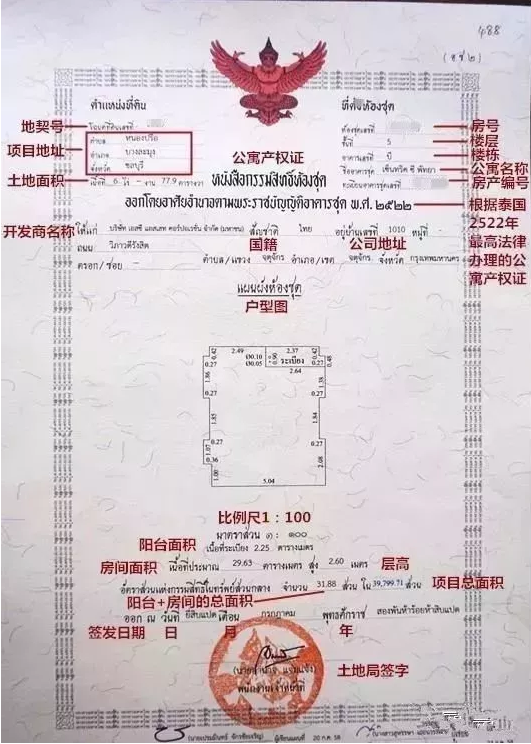 488
(อ.ช.๒)
ตำแหน่งที่ดิน
ที่ตั้งห้องชุด
地契号
โฉนดที่ดินเลขที่
ห้องชุดเลขที่
房号
项目地址
ตำบล หนองปรือ
ชั้นที่ 5
楼层
อำเภอ บางละมุง
อาคารเลขที่
楼栋
จังหวัด ชลบุรี
公寓产权证
ชื่ออาคารชุด เซ็นทริค ซี พัทยา
公寓名称
土地面积
เนื้อที่ 6 ไร่ - งาน 77.9 ตารางวา
หนังสือกรรมสิทธิ์ห้องชุด
ทะเบียนอาคารชุดเลขที่
房产编号
ออกโดยอาศัยอำนาจตามพระราชบัญญัติอาคารชุด พ.ศ. ๒๕๒๒
根据泰国
2522年
最高法律
办理的公
寓产权证
开发商名称
ให้แก่ บริษัท เอสซี แอสเสท คอร์ปอเรชั่น จำกัด (มหาชน) สัญชาติ ไทย อยู่บ้านเลขที่ 1010 หมู่ที่ -
国籍
公司地址
ถนน วิภาวดีรังสิต ตำบล/แขวง จตุจักร อำเภอ/เขต จตุจักร จังหวัด กรุงเทพมหานคร
ตรอก/ซอย -
แผนผังห้องชุด
户型图
0.42 2.49 Ø0.10 0.90 2.37 0.42
0.27 Ø0.05 ระเบียง 0.27 0.48
2.64
1.86 1.38
0.27 0.27
1.85 1.84
1.07 0.27 0.27
0.36
1.00 2.08
5.04
比例尺1：100
มาตราส่วน ๑: ๑๐๐
阳台面积
เนื้อที่ระเบียง 2.25 ตารางเมตร
房间面积
เนื้อที่ประมาณ 29.63 ตารางเมตร สูง 2.60 เมตร
层高
อัตราส่วนแห่งกรรมสิทธิ์ในทรัพย์ส่วนกลาง จำนวน 31.88 ส่วน ใน 39,799.71 ส่วน
项目总面积
阳台+房间的总面积
ออก ณ วันที่ ยี่สิบแปด เดือน กรกฎาคม พุทธศักราช สองพันห้าร้อยห้าสิบแปด
签发日期 日 月 年
土地局签字
พนักงานเจ้าหน้าที่